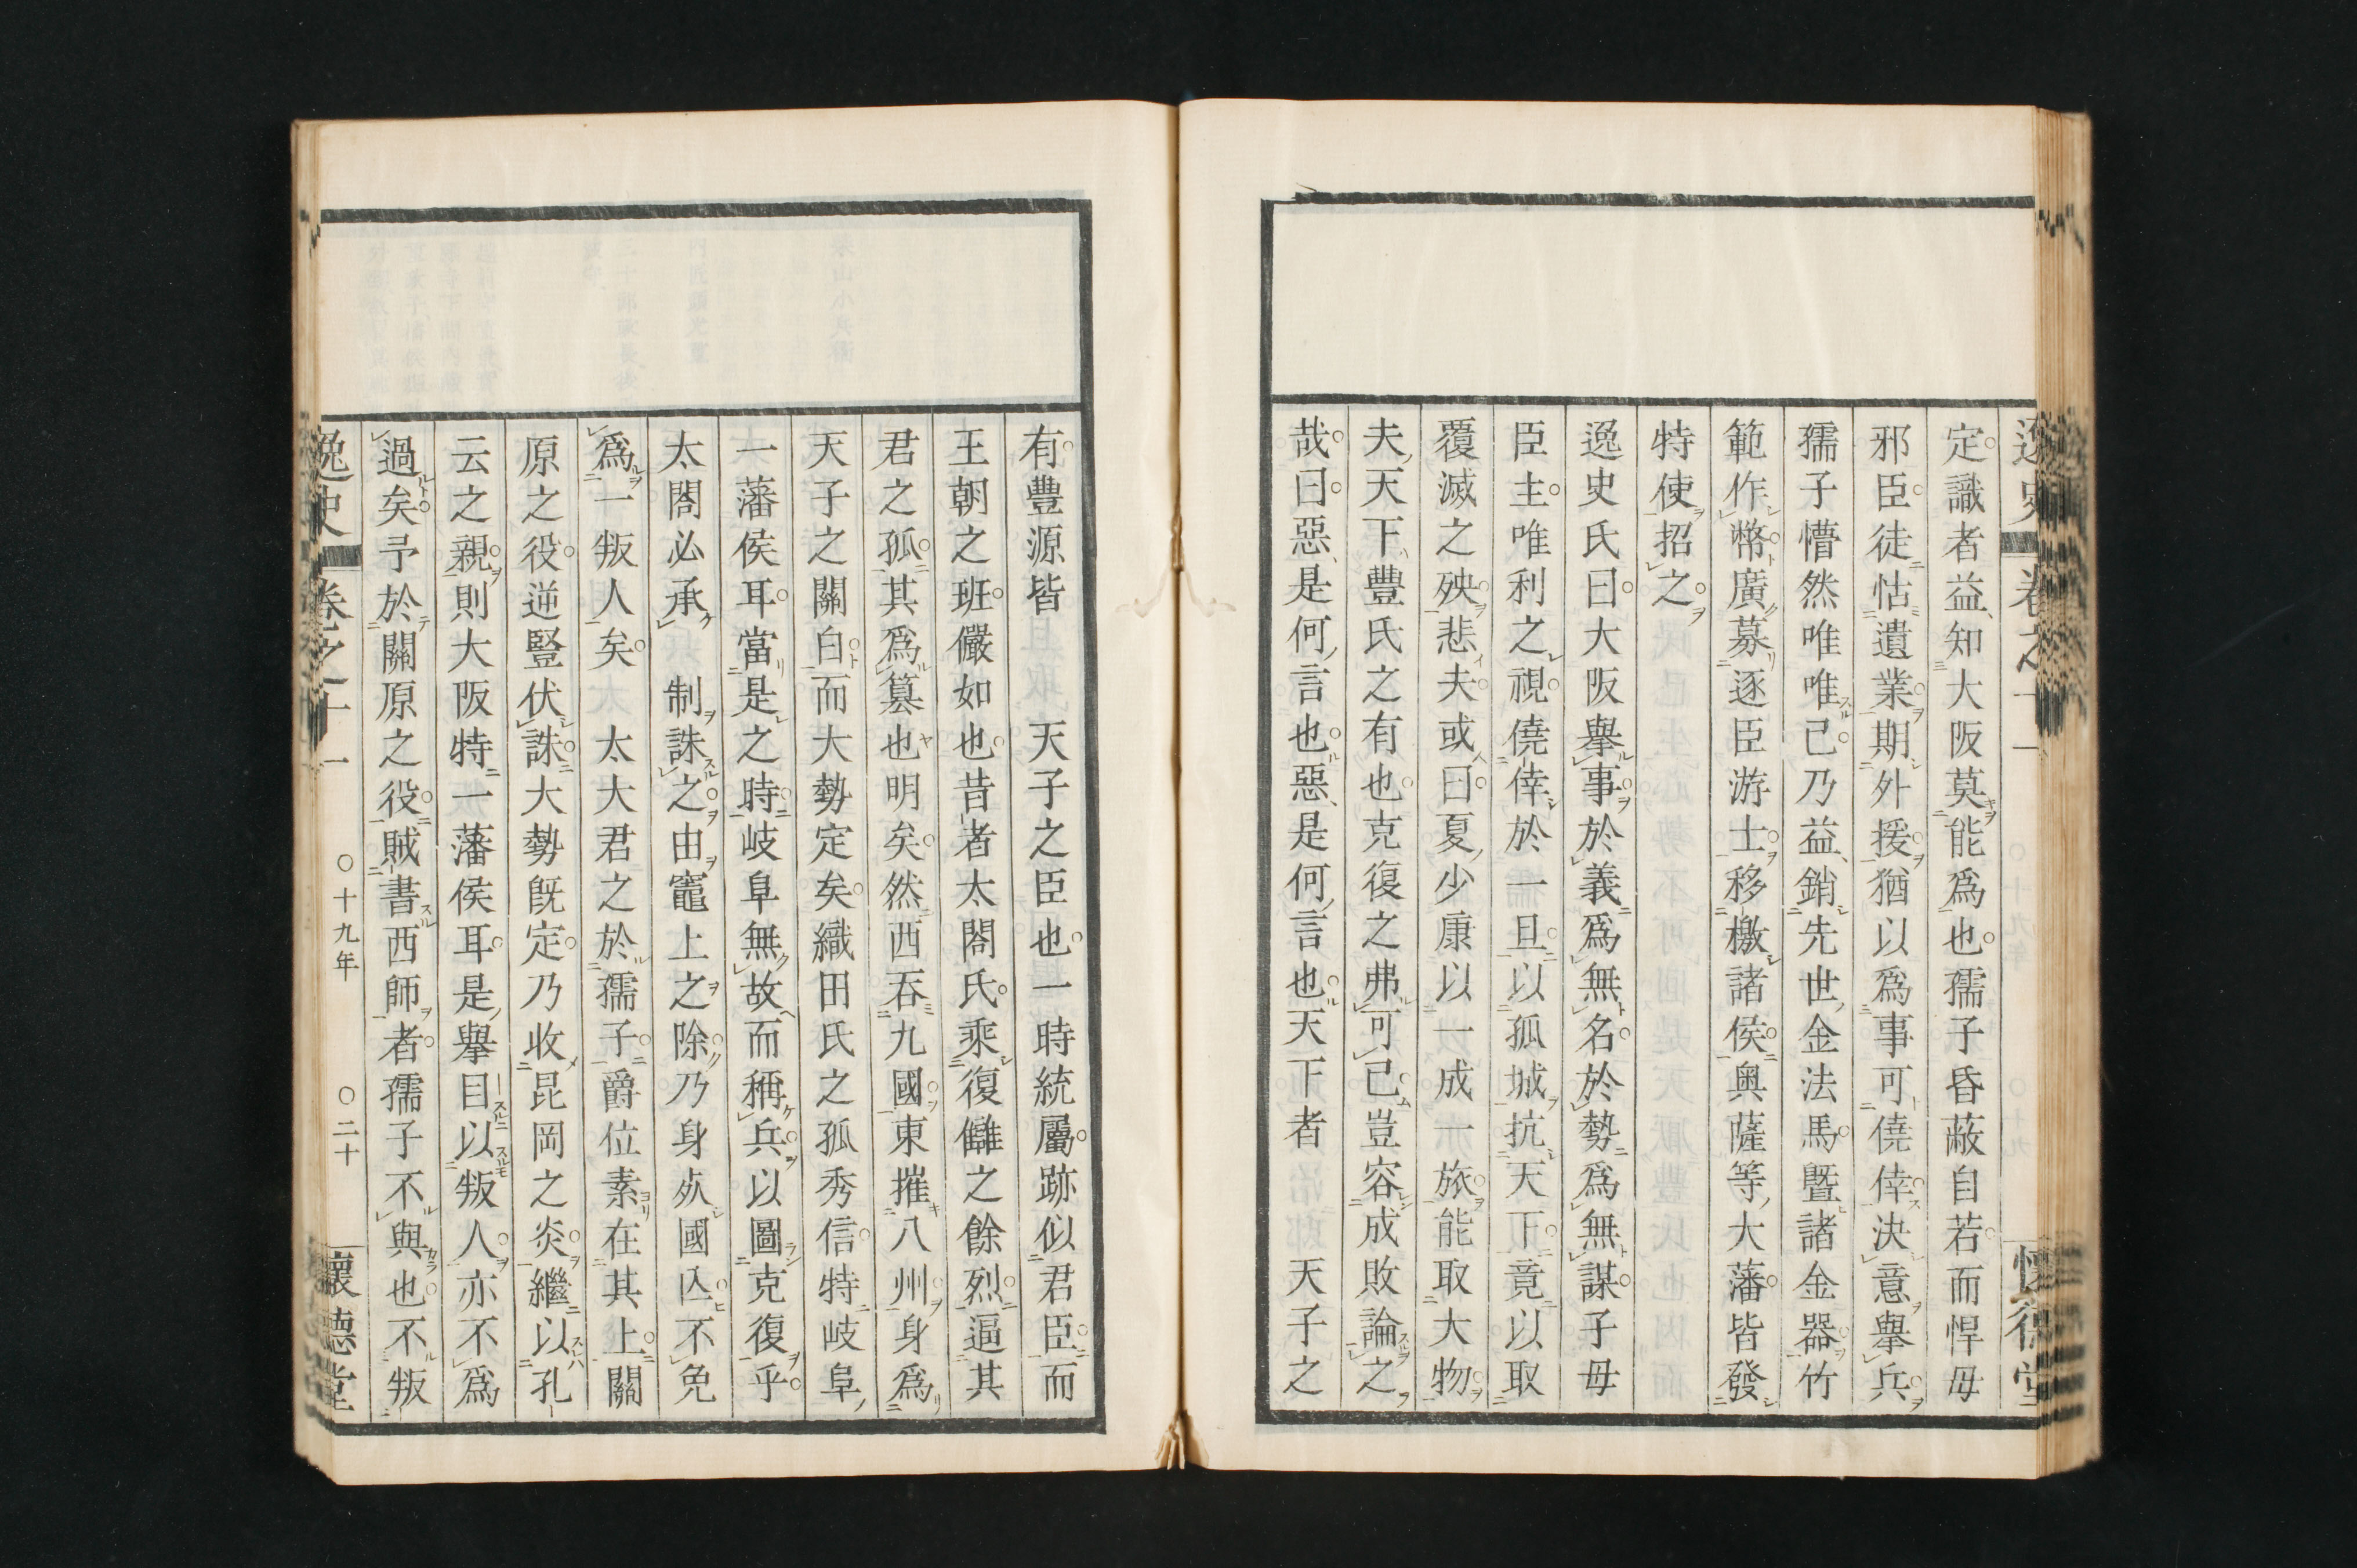 定識者益知大阪莫能爲也孺子昏蔽自若而悍毋
邪臣徒怙遺業期外援猶以爲事可僥倖決意擧兵
孺子懵然唯唯己乃益銷先世金法馬曁諸金器竹
範作幣廣募逐臣游士移檄諸侯奥薩等大藩皆發
特使招之
逸史氏曰大阪擧事於義爲無名於勢爲無謀子毋
臣主唯利之視僥倖於一旦以孤城抗天下竟以取
覆滅之殃悲夫或曰夏少康以一成一旅能取大物
夫天下豐氏之有也克復之弗可已豈容成敗論之
哉曰惡是何言也惡是何言也天下者　天子之
有豐源皆　天子之臣也一時統屬跡似君臣而
王朝之班儼如也昔者太閤氏乘復讎之餘烈逼其
君之孤其爲簒也明矣然西呑九國東摧八州身爲
天子之關白而大勢定矣織田氏之孤秀信特岐阜
一藩侯耳當是之時岐阜無故而稱兵以圖克復乎
太閤必承　制誅之由竈上之除乃身*国*
爲一叛人矣　太大君之於孺子爵位素在其上關
原之役逆豎伏誅大勢旣定乃收昆岡之炎繼以孔
云之親則大阪特一藩侯耳是擧目以叛人亦不爲
過矣予於關原之役賊書西師者孺子不與也不叛
逸史　卷之十一　〇十九年　〇二十　懷德堂